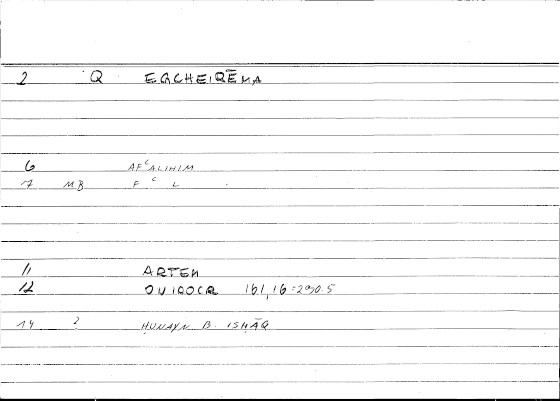 2 Q EGCHEIRĒMA
6 AFʿALIHIM
7 MB F ʿ L
11 ARTEM
12 OVIROCR 161,16=290.5
14 2 ḤUNAYN B. ISḤĀQ